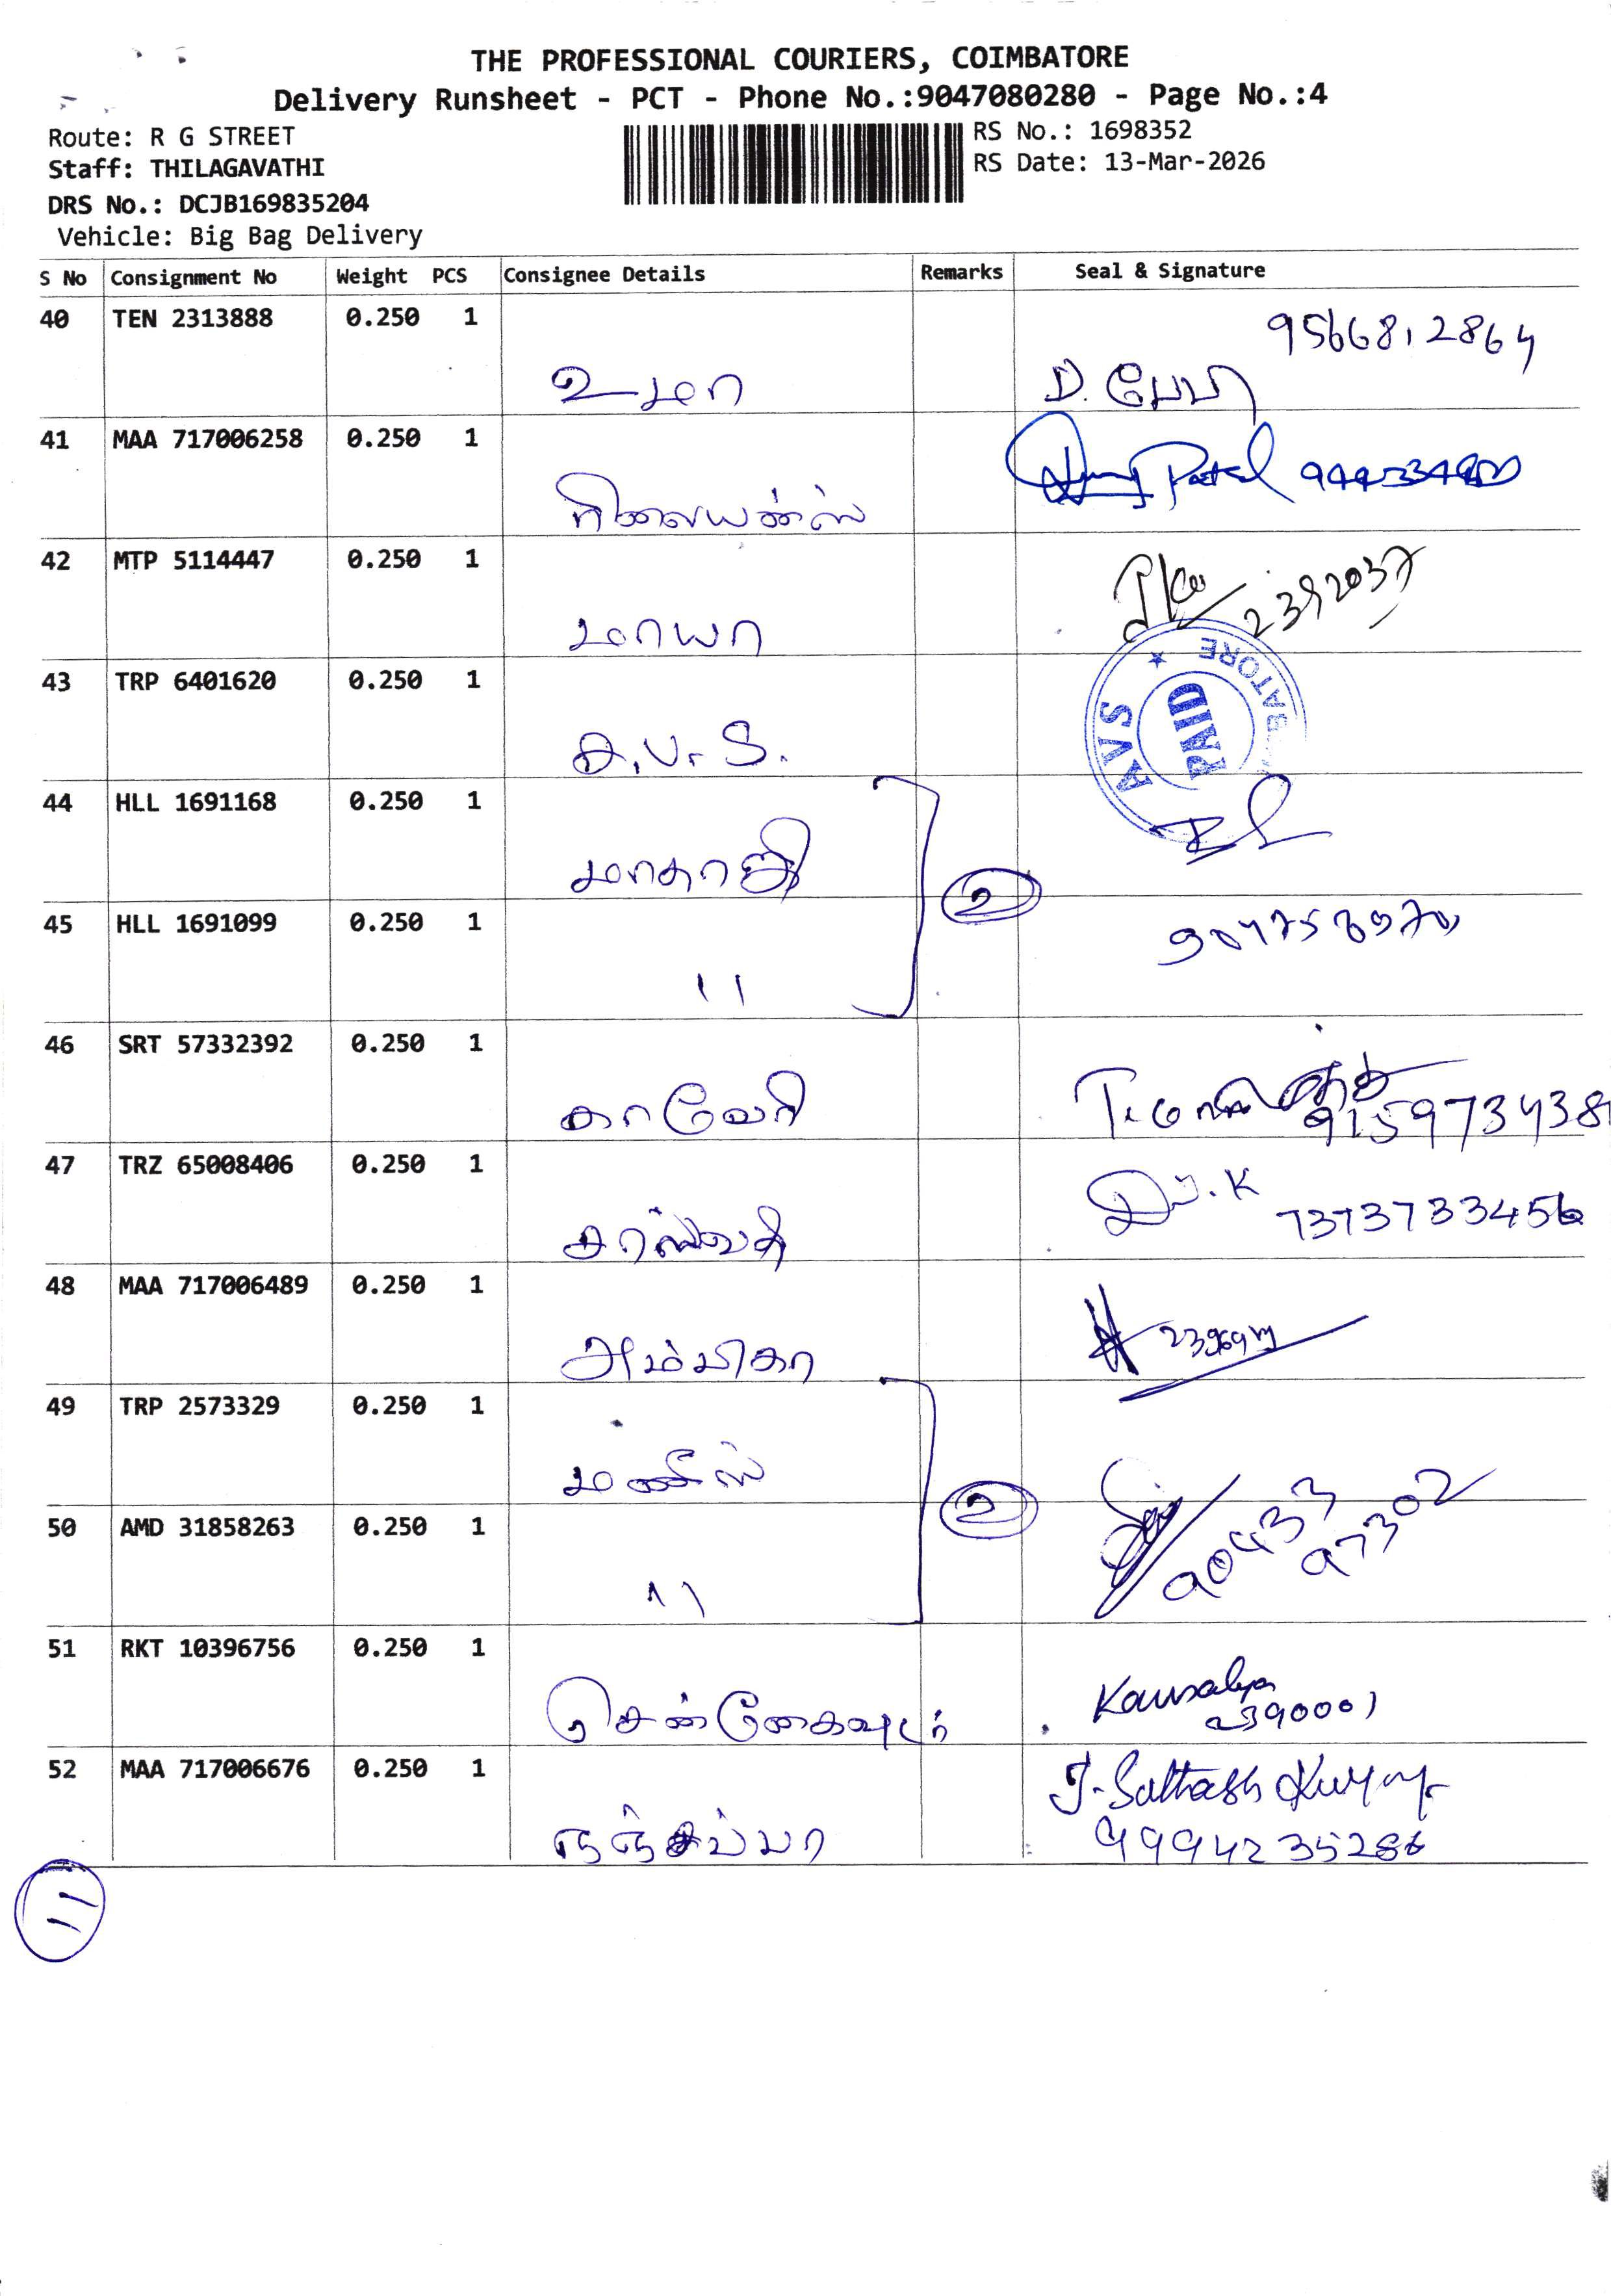 THE PROFESSIONAL COURIERS, COIMBATORE
Delivery Runsheet - PCT - Phone No.:9047080280 - Page No.:4
Route: R G STREET
Staff: THILAGAVATHI
DRS No.: DCJB169835204
Vehicle: Big Bag Delivery
RS No.: 1698352
RS Date: 13-Mar-2026
S No Consignment No Weight PCS Consignee Details Remarks Seal & Signature
40 TEN 2313888 0.250 1
9566812864
உமா D. பேபி
41 MAA 717006258 0.250 1
Patel
ரிலையன்ஸ்
42 MTP 5114447 0.250 1
2392037
மாயா
43 TRP 6401620 0.250 1
AVS PMID
A.V.S.
44 HLL 1691168 0.250 1
மாதாஜி
2
45 HLL 1691099 0.250 1
11
46 SRT 57332392 0.250 1
காவேரி 9159734381
47 TRZ 65008406 0.250 1
7373733456
சரஸ்வதி
48 MAA 717006489 0.250 1
அம்பிகா
49 TRP 2573329 0.250 1
மணீஸ்
2
50 AMD 31858263 0.250 1
90433
97302
11
51 RKT 10396756 0.250 1
Kausalya
2390001
52 MAA 717006676 0.250 1
J. Sathash Kumar
நஞ்சப்பா 9994235286
11